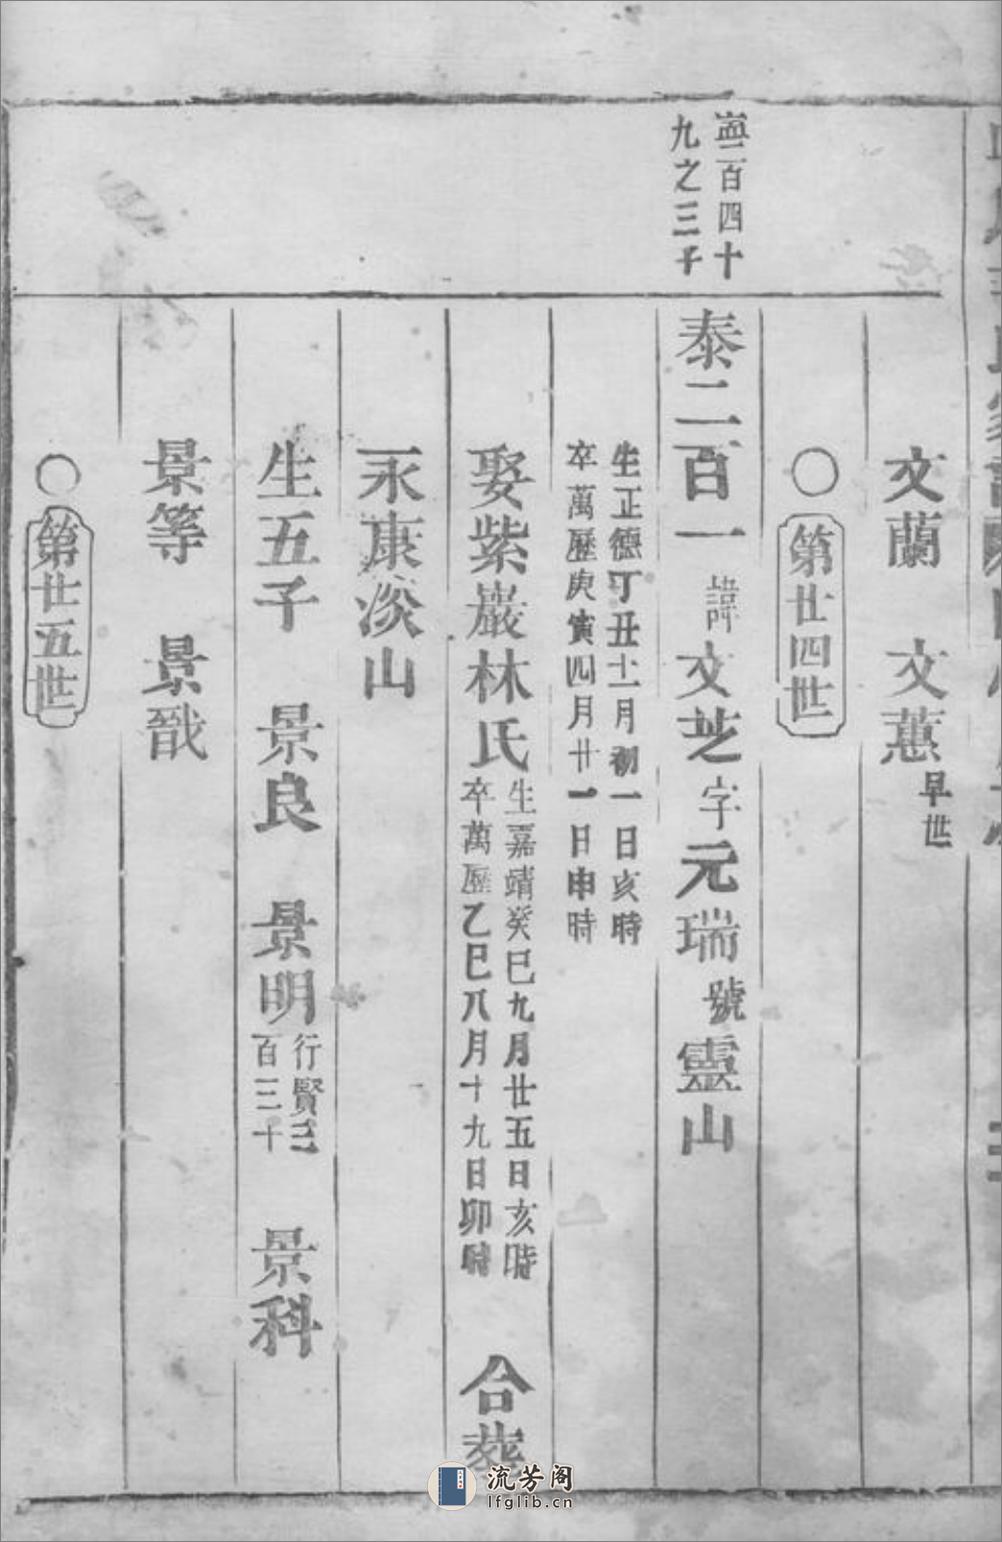 文蘭 文蕙早世
○第廿四世
百四十
九之三子
泰二百一諱文芝字元瑞號靈山
生正德丁丑十一月初一日亥時
卒萬歷庚寅四月廿一日申時
娶紫巖林氏
生嘉靖癸巳九月廿五日亥時
卒萬歷乙巳八月十九日卯時
合葬
永康淡山
生五子 景良 景明
行賢三
百三十
景科
景等 景戩
○第廿五世
流芳阁
lfglib.cn